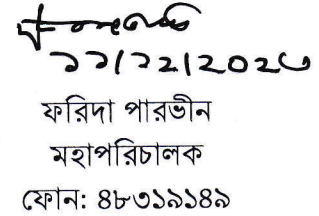 ১১/১২/২০২৩
ফরিদা পারভীন
মহাপরিচালক
ফোন: ৪৮৩১৯১৪৯